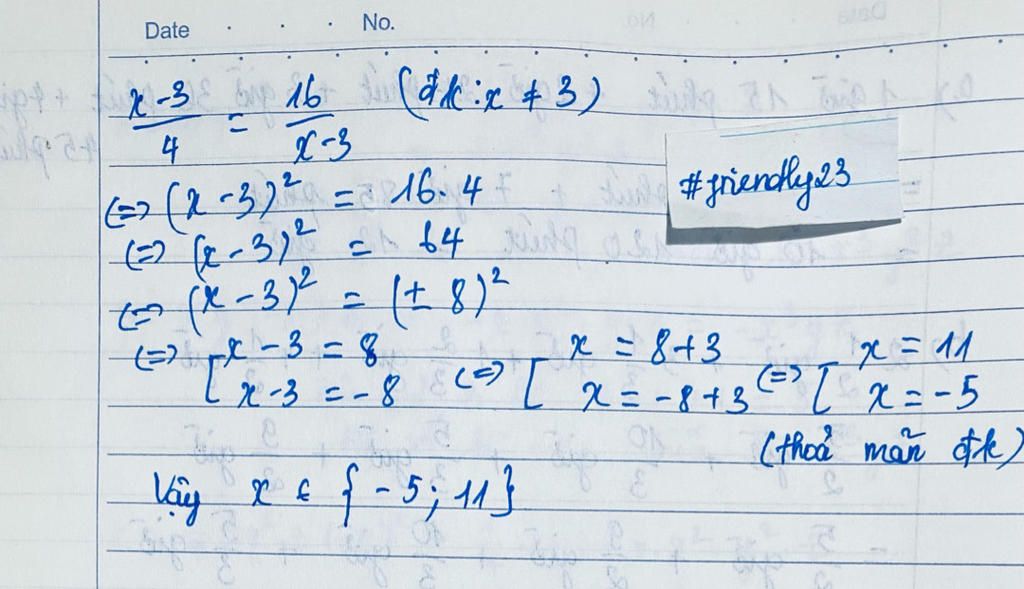 Date No.
x-3/4 = 16/x-3 (đk: x ≠ 3)
#friendly23
<=> (x - 3)² = 16.4
<=> (x - 3)² = 64
<=> (x - 3)² = (± 8)²
<=> [ x - 3 = 8 <=> [ x = 8+3 <=> [ x = 11
x-3 = -8 x = -8+3 x = -5
(thoả mãn đk)
Vậy x ∈ {-5; 11}